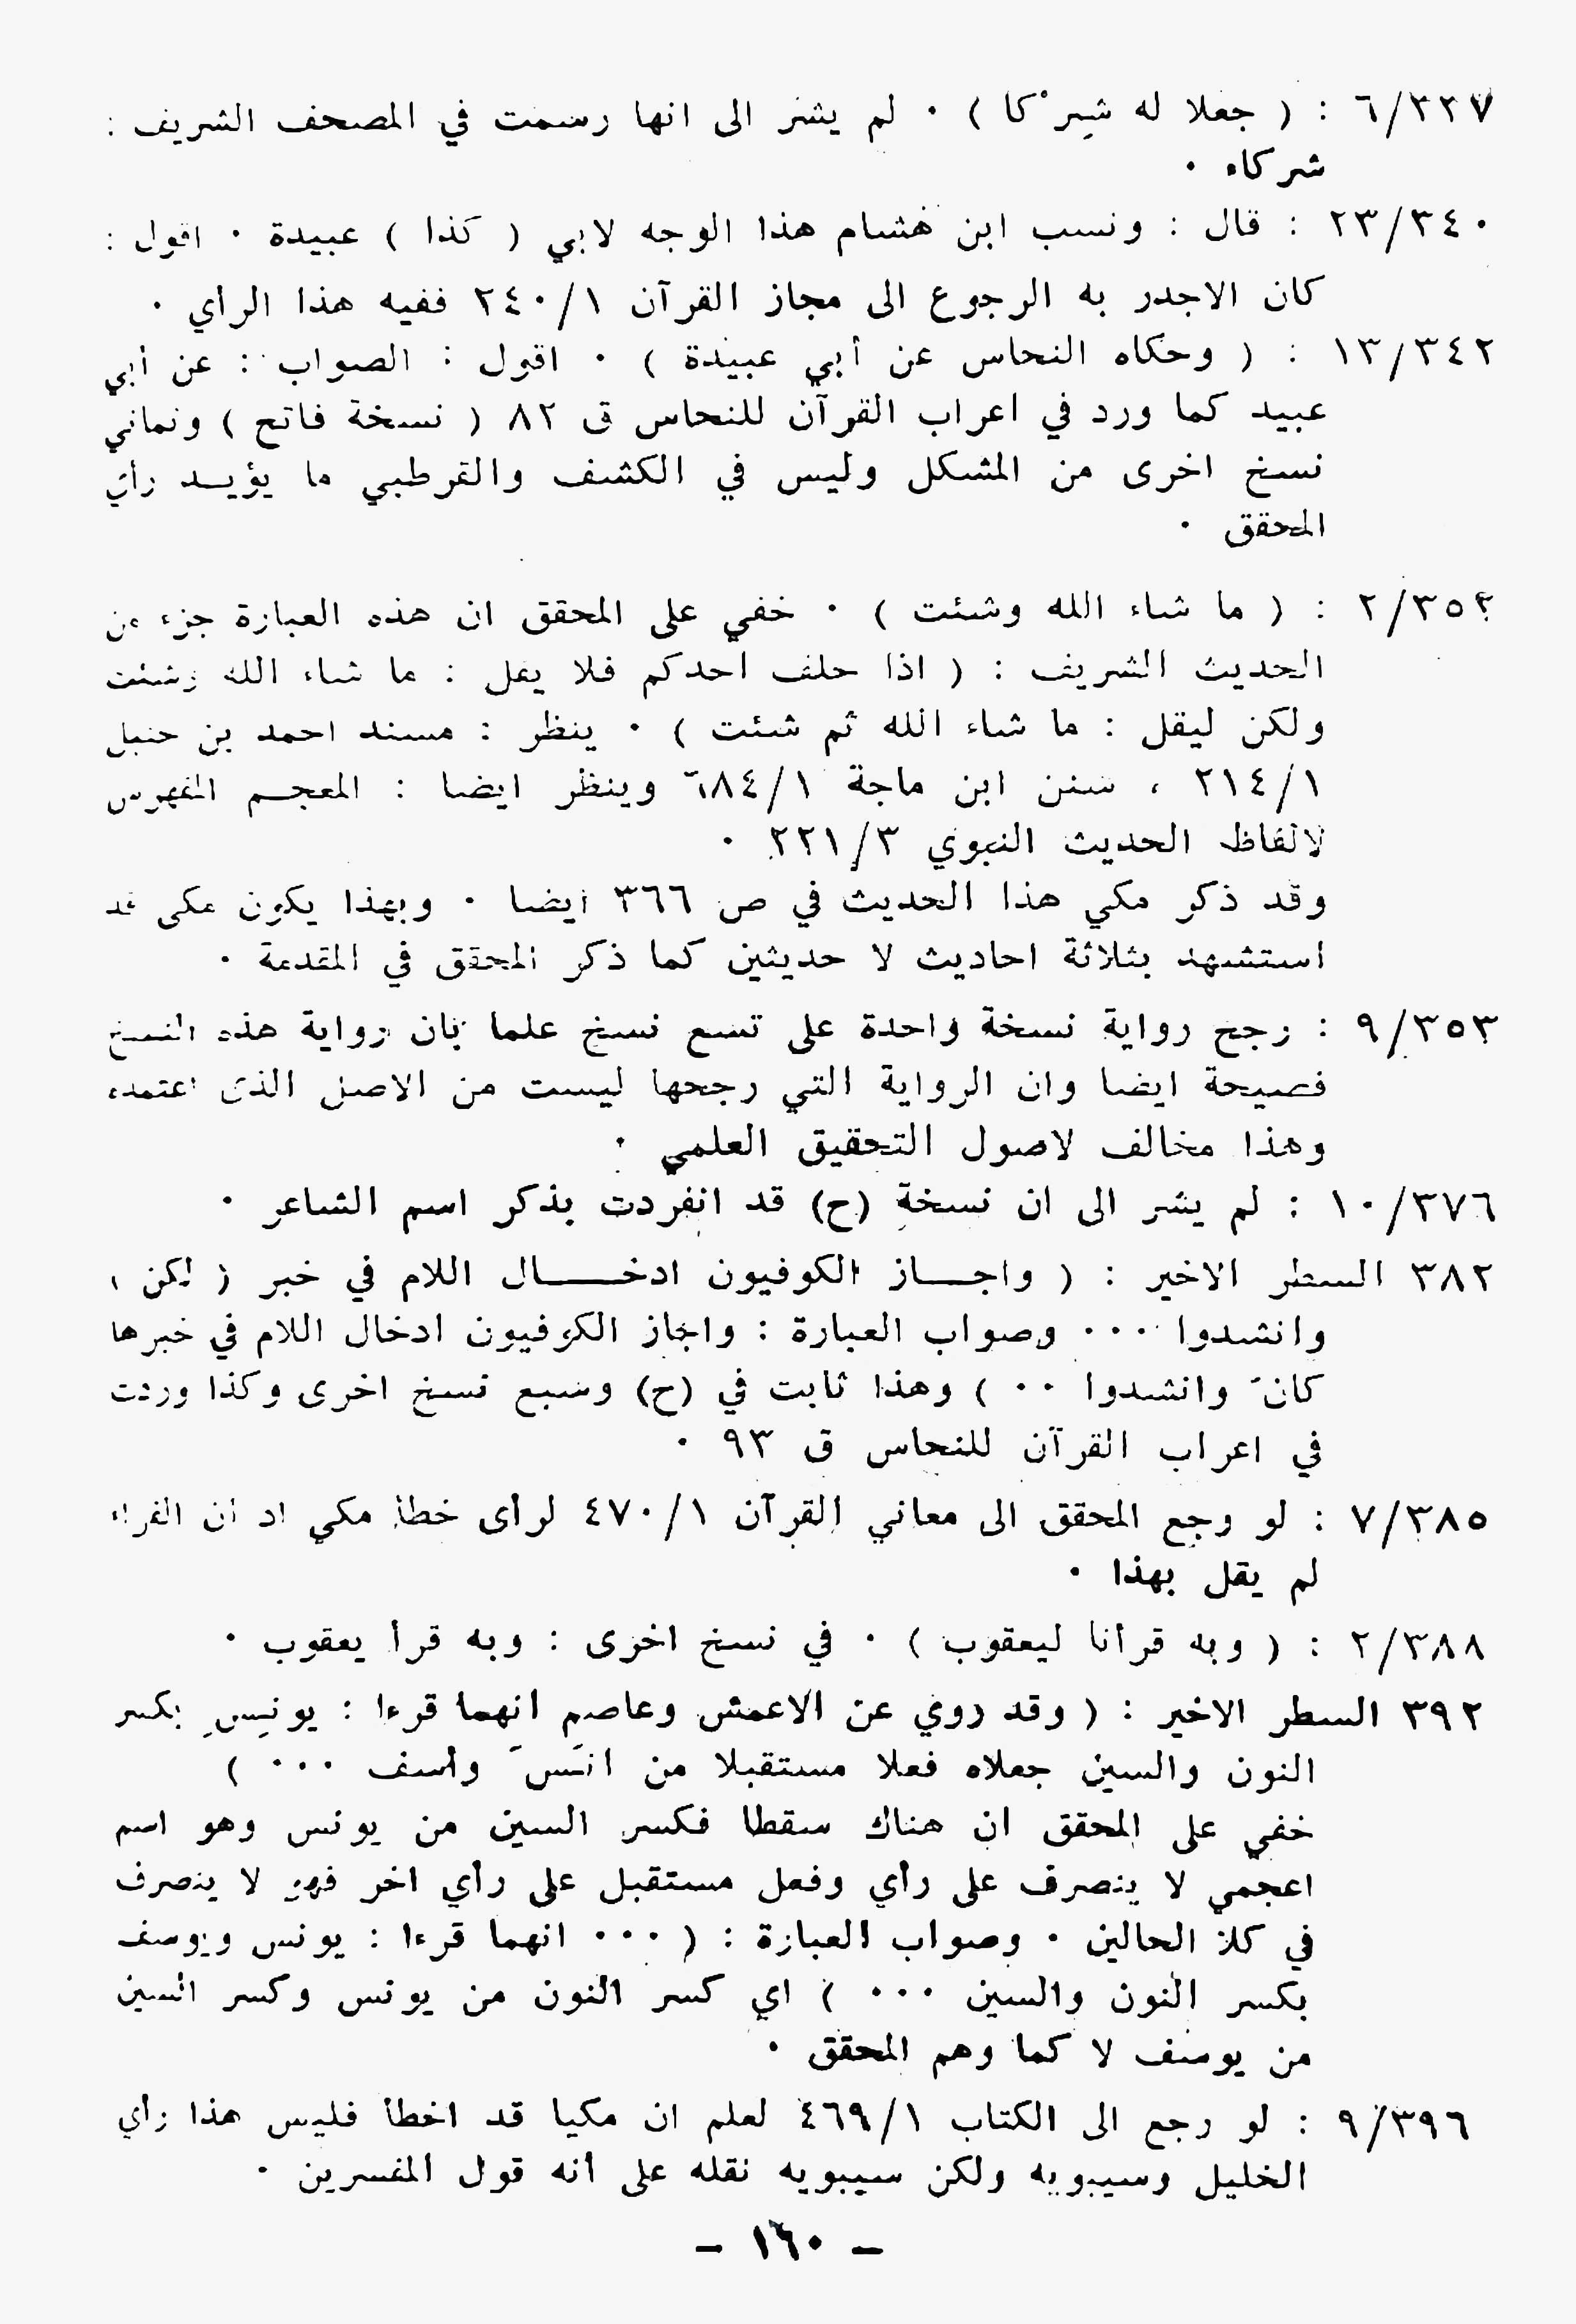 ٦/٣٣٧ : ( جعلا له شِرْكا ) ٠ لم يشر الى انها رسمت في المصحف الشريف :
شركاء ٠
٢٣/٣٤٠ : قال : ونسب ابن هشام هذا الوجه لابي ( كذا ) عبيدة ٠ اقول :
كان الاجدر به الرجوع الى مجاز القرآن ٢٤٠/١ ففيه هذا الرأي ٠
١٣/٣٤٢ : ( وحكاه النحاس عن أبي عبيدة ) ٠ اقول : الصواب : عن أبي
عبيد كما ورد في اعراب القرآن للنحاس ق ٨٢ ( نسخة فاتح ) وثماني
نسخ اخرى من المشكل وليس في الكشف والقرطبي ما يؤيــد رأي
المحقق ٠
٢/٣٥٢ : ( ما شاء الله وشئت ) ٠ خفي على المحقق ان هذه العبارة جزء من
الحديث الشريف : ( اذا حلف احدكم فلا يقل : ما شاء الله وشئت
ولكن ليقل : ما شاء الله ثم شئت ) ٠ ينظر : مسند احمد بن حنبل
٢١٤/١ ، سنن ابن ماجة ٦٨٤/١ وينظر ايضا : المعجـم المفهرس
لالفاظ الحديث النبوي ٢٢١/٣ ٠
وقد ذكر مكي هذا الحديث في ص ٣٦٦ ايضا ٠ وبهذا يكون مكي قد
استشهد بثلاثة احاديث لا حديثين كما ذكر المحقق في المقدمة ٠
٩/٣٥٣ : رجح رواية نسخة واحدة على تسع نسخ علما بان رواية هذه النسخ
فصيحة ايضا وان الرواية التي رجحها ليست من الاصل الذي اعتمده
وهذا مخالف لاصول التحقيق العلمي ٠
١٠/٣٧٦ : لم يشر الى ان نسخة (ح) قد انفردت بذكر اسم الشاعر ٠
٣٨٢ السطر الاخير : ( واجــاز الكوفيون ادخـــال اللام في خبر ( لكن )
وانشدوا ٠٠٠ وصواب العبارة : واجاز الكوفيون ادخال اللام في خبرها
كانَ وانشدوا ٠٠ ) وهذا ثابت في (ح) وسبع نسخ اخرى وكذا وردت
في اعراب القرآن للنحاس ق ٩٣ ٠
٧/٣٨٥ : لو وجع المحقق الى معاني القرآن ٤٧٠/١ لرأى خطأ مكي اذ ان الفراء
لم يقل بهذا ٠
٢/٣٨٨ : ( وبه قرأنا ليعقوب ) ٠ في نسخ اخرى : وبه قرأ يعقوب ٠
٣٩٢ السطر الاخير : ( وقد روي عن الاعمش وعاصم انهما قرءا : يونِسِ بكسر
النون والسين جعلاه فعلا مستقبلا من انَسَ وأسف ٠٠٠ )
خفي على المحقق ان هناك سقطا فكسر السين من يونس وهو اسم
اعجمي لا ينصرف على رأي وفعل مستقبل على رأي اخر فهو لا ينصرف
في كلا الحالين ٠ وصواب العبارة : ( ٠٠٠ انهما قرءا : يونس ويوسف
بكسر النون والسين ٠٠٠ ) اي كسر النون من يونس وكسر السين
من يوسف لا كما وهم المحقق ٠
٩/٣٩٦ : لو رجع الى الكتاب ٤٦٩/١ لعلم ان مكيا قد اخطأ فليس هذا رأي
الخليل وسيبويه ولكن سيبويه نقله على أنه قول المفسرين ٠
– ١٦٠ –